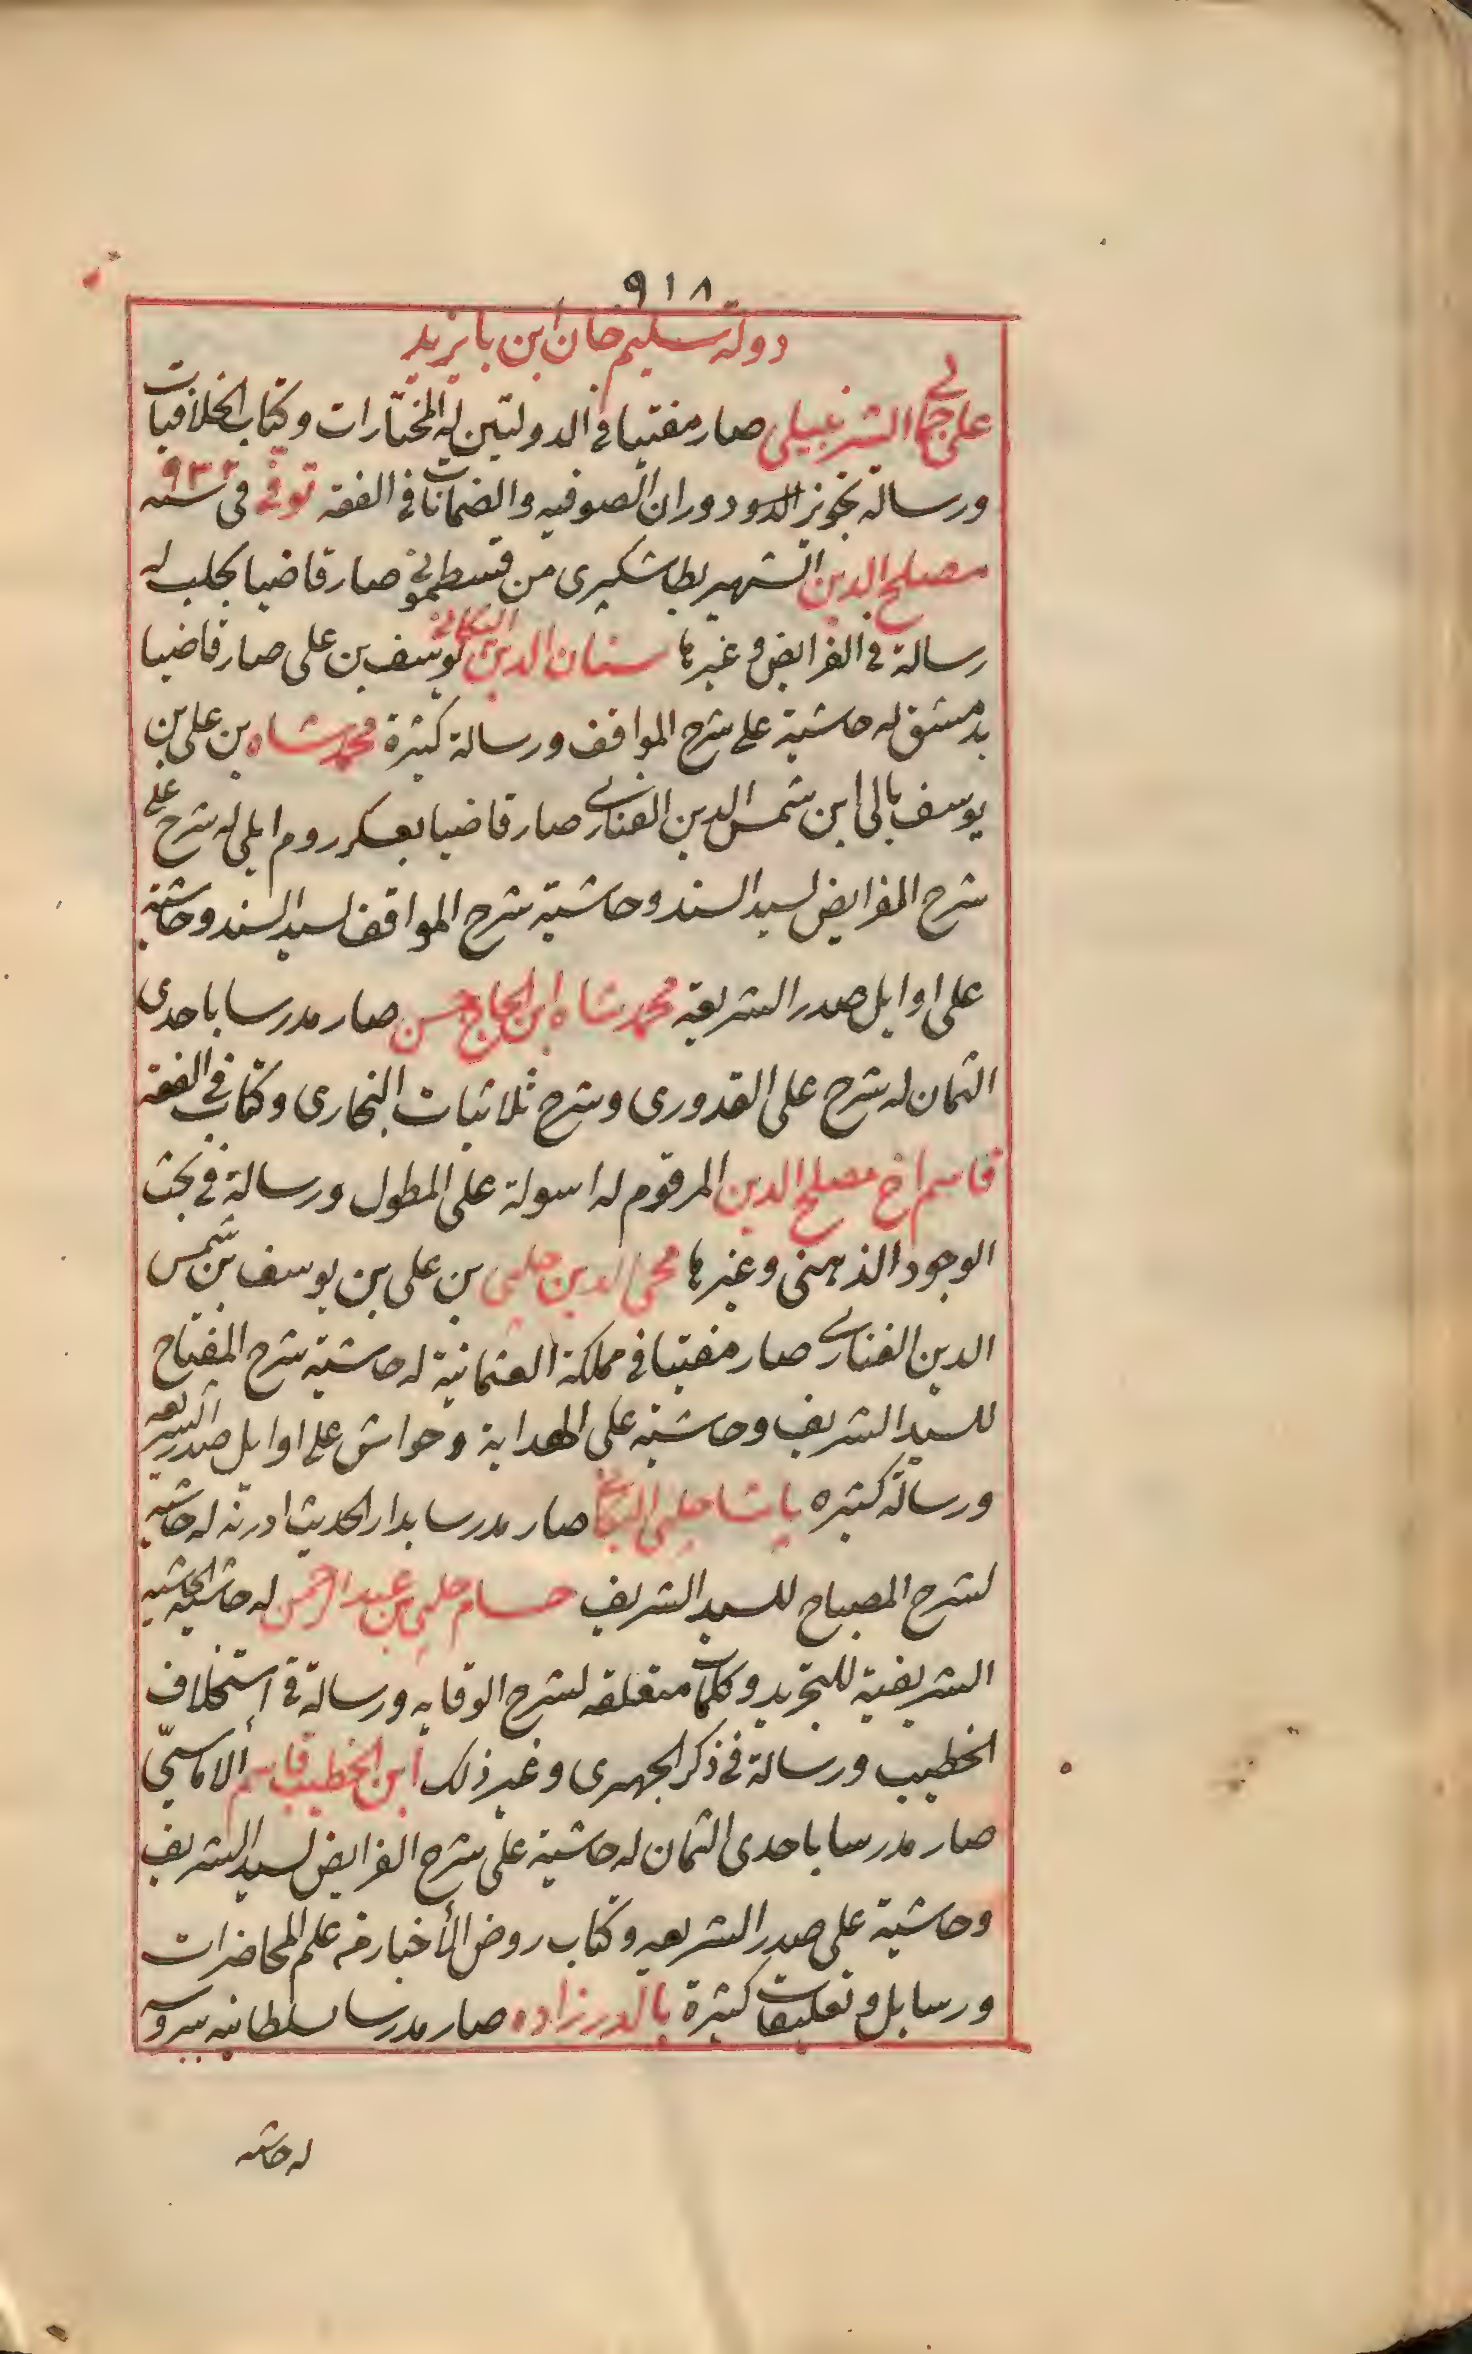 ٩١٨
دولة سليم خان ابن بايزيد
على جمالى الشر نبيلى صار مفتيا فى الدولتين له المختارات وكتاب الخلافيات
ورسالة تجويز الدود وران الصوفيه والضمانات فى الفقه توفى فى سنه ٩٣٢
مصلح الدين الشهير بطاشكبرى من قسطمونى صار قاضيا بحلب له
رسالة فى الفرايض وغيرها سنان الدين يوسف بن على صار قاضيا
بدمشق له حاشية على شرح المواقف ورسالة كثيرة محمد شاه بن على بن
يوسف بالى ابن شمس الدين الفنارى صار قاضيا بعسكر روم ايلى له شرح على
شرح الفرايض لسيد السند وحاشية شرح المواقف لسيد السند وحاشية
على اوايل صدر الشريعة محمد شاه ابن الحاج حسن صار مدرسا باحدى
الثمان له شرح على القدورى وشرح ثلاثيات البخارى وكتاب فى الفقه
قاسم اخ مصلح الدين المرقوم له اسولة على المطول ورسالة فى بحث
الوجود الذهنى وغيرها محى الدين چلبى بن على بن يوسف بن شمس
الدين الفنارى صار مفتيا فى مملكة العثمانية له حاشية شرح المفتاح
للسيد الشريف وحاشية على الهداية وحواش على اوايل صدر الشريعه
ورسالة كثيره پاشا چلبى البكانى صار مدرسا بدار الحديث ادرنه له حاشية
لشرح المصباح للسيد الشريف حسام چلبى بن عبد الرحمن له حاشية لحاشية
الشريفية للتجريد وكلمات متعلقه لشرح الوقايه ورسالة فى استخلاف
الخطيب ورسالة فى ذكر الجهرى وغير ذلك ابن الخطيب قاسم الاماسىّ
صار مدرسا باحدى الثمان له حاشية على شرح الفرايض لسيد الشريف
وحاشية على صدر الشريعه وكتاب روض الأخبار فى علم المحاضرات
ورسايل وتعليقات كثيرة بالدر زاده صار مدرسا بسلطانيه بروسه
له حاشيه